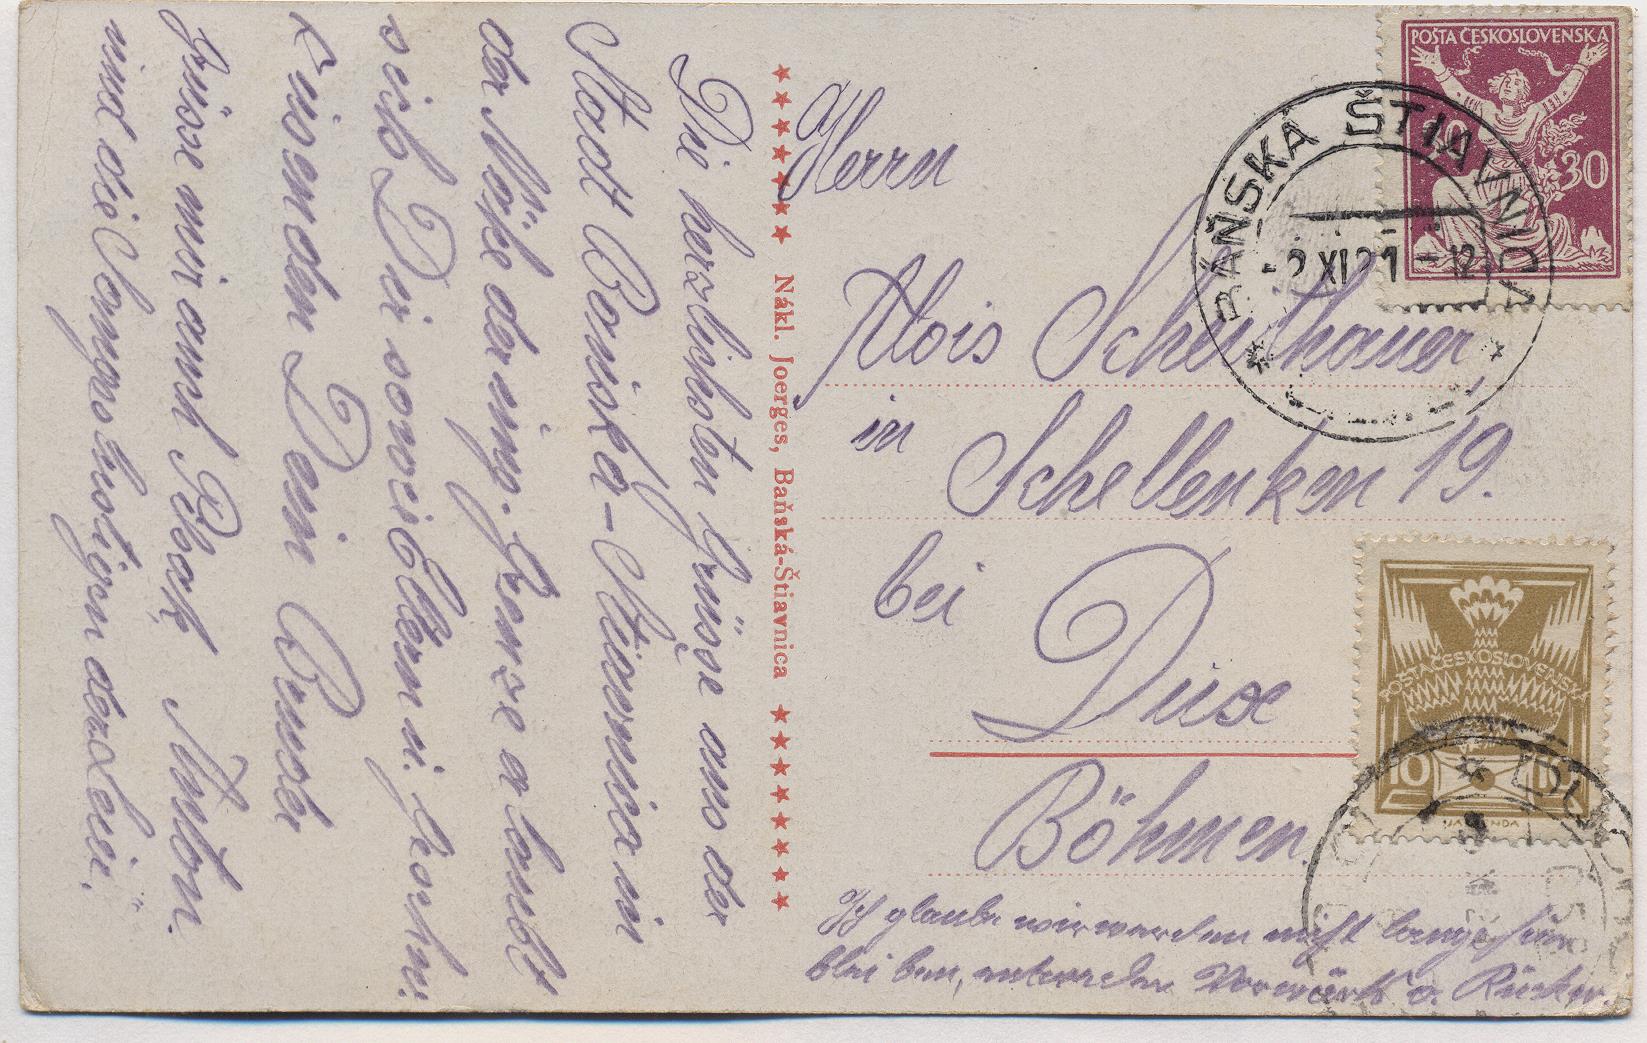 Die herzlichsten Grüsse aus der
Stadt Banska-Stiavnica in
der Nähe der ung. Grenze erlaubt
sich Dir sowie Eltern u.
küssenden Dein Bruder
Grüsse mir auch Anton.
und die
Nákl. Joerges, Baňská-Štiavnica
Herrn
Alois Scheithauer,
in Schellenken 19.
bei Dux
Böhmen.
Ich glaube wir werden nicht lange hier
bleiben, entweder Vorwärts o. Rückw.
POŠTA ČESKOSLOVENSKÁ
30
BÁŇSKÁ ŠTIAVNICA
-2 XI 21 - 12
POŠTA ČESKOSLOVENSKÁ
10